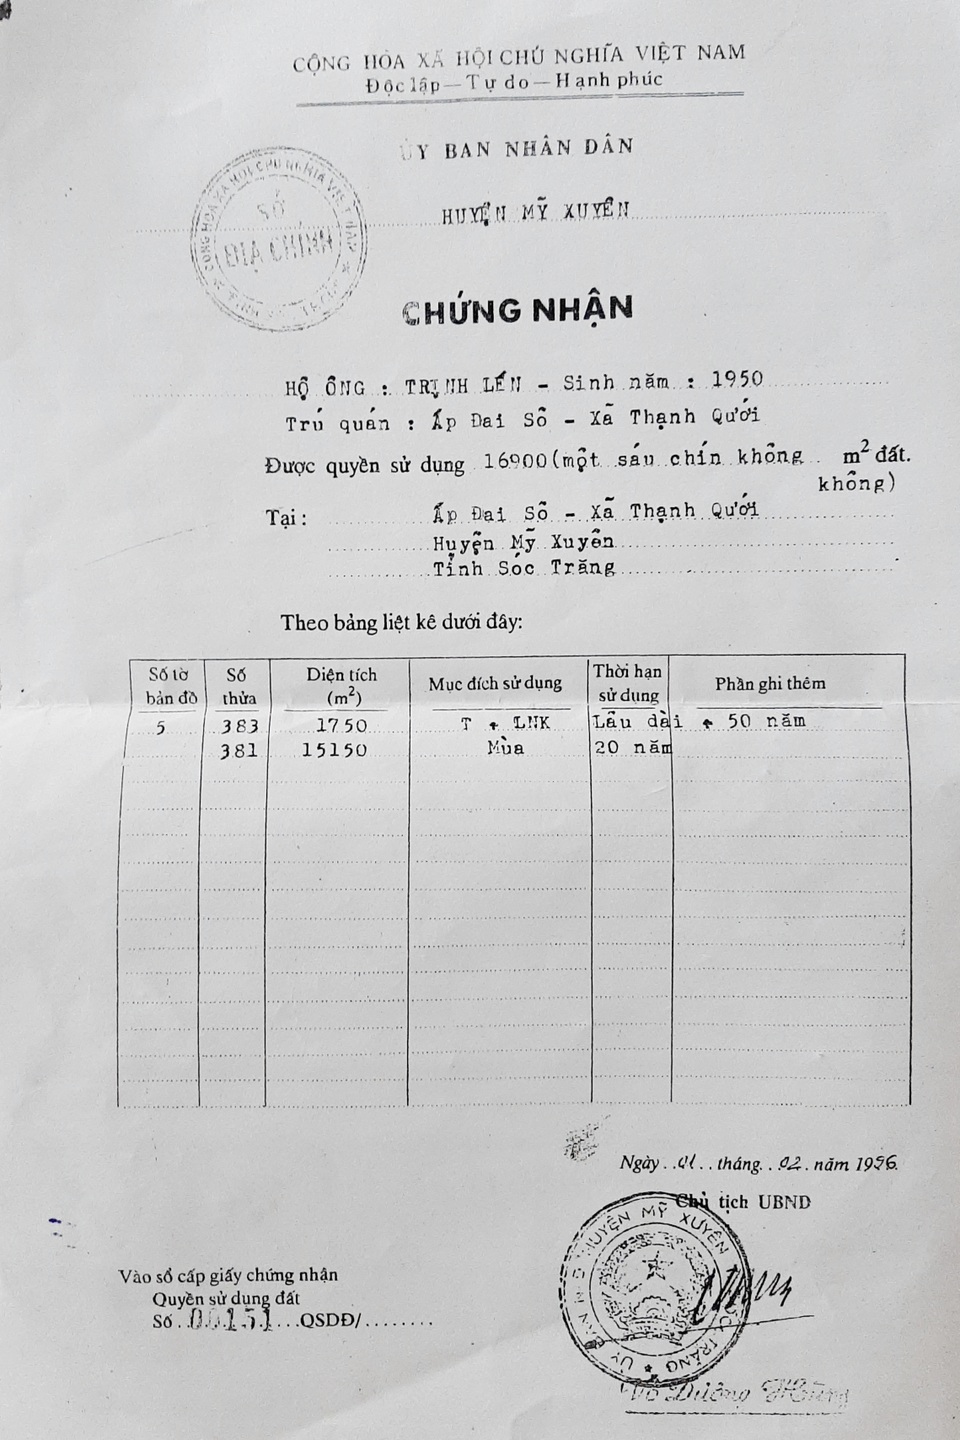 CỘNG HÒA XÃ HỘI CHỦ NGHĨA VIỆT NAM
Độc lập — Tự do — Hạnh phúc
ỦY BAN NHÂN DÂN
HUYỆN MỸ XUYÊN
CỘNG HÒA XÃ HỘI CHỦ NGHĨA VIỆT NAM
SỞ
ĐỊA CHÍNH
CHỨNG NHẬN
HỘ ÔNG : TRỊNH LẾN - Sinh năm : 1950
Trú quán : Ấp Đai Sồ - Xã Thạnh Qưới
Được quyền sử dụng 16900(một sáu chín không m² đất.
không)
Tại : Ấp Đại Sồ - Xã Thạnh Qưới
Huyện Mỹ Xuyên
Tỉnh Sóc Trăng
Theo bảng liệt kê dưới đây:
Số tờ bản đồ Số thửa Diện tích (m²) Mục đích sử dụng Thời hạn sử dụng Phần ghi thêm
5 383 1750 T + LNK Lâu dài + 50 năm
381 15150 Mùa 20 năm
Ngày 01 tháng 02 năm 1996
Chủ tịch UBND
ỦY BAN N D HUYỆN MỸ XUYÊN T SÓC TRĂNG
Vào sổ cấp giấy chứng nhận
Quyền sử dụng đất
Số 00151 QSDĐ/
Võ Dương Hồng